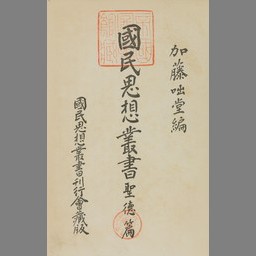 加藤咄堂編
國民思想叢書聖德篇
國民思想叢書刊行會藏版